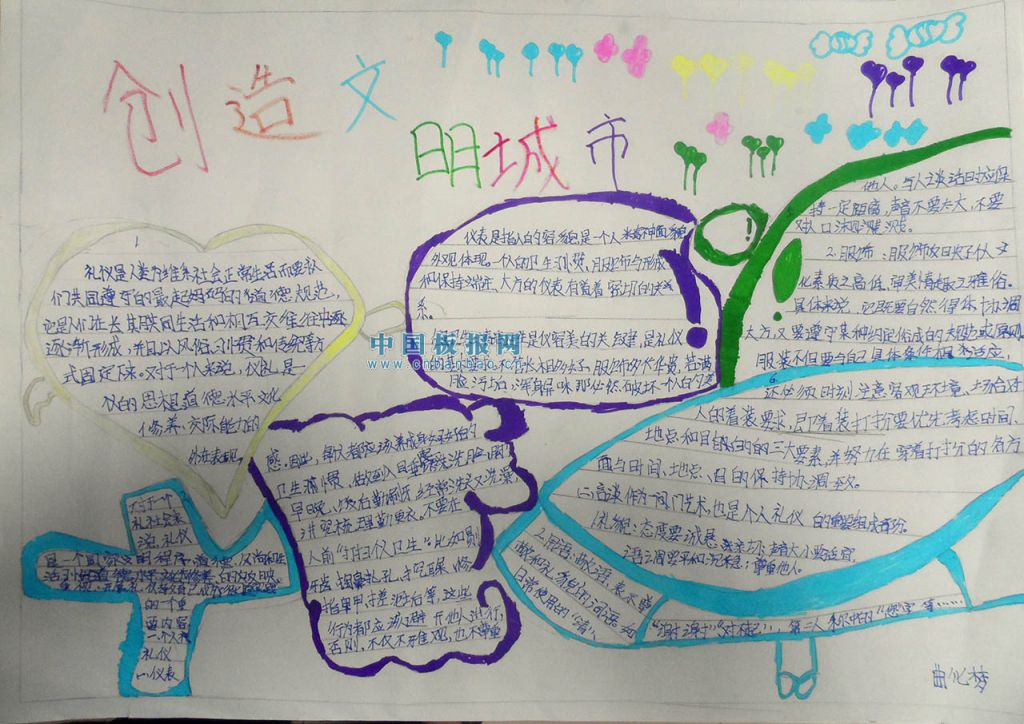 创造文
明城市
1
礼仪是人类为维系社会正常生活而要求人
们共同遵守的最起码的道德规范,
它是人们在长其联同生活和相互交往中逐
逐渐形成,并且以风俗、习惯和传统等方
式固定下来。对于个人来说,仪礼是一
仪的思想道德水平、文化
修养、交际能力的
外在表现
对于一个
礼社会来
说,礼仪
是一个国家文明程序、道德
的一个重
要内容
一个人
礼仪
一、仪表
仪表是指人的容貌是一个人精神面貌
外观体现。一个人的卫生习惯、服饰与形成
和保持端正、大方的仪表有着密切的关
系。
1.卫生:清洁卫生是仪容美的关键,是礼仪
的基本要求。不管长相多好,服饰多华贵,若满
脸污垢,浑身异味,那必然破坏一个人的美
感。因此,每个人都应该养成良好的
卫生习惯,做到入目垂起床洗脸、脚,
早晚、饭后勤刷牙,经常洗头又洗澡,
讲究梳理勤更衣。不要在
人前“打扫个卫生”比如剔
牙齿、掏鼻礼孔、挖耳屎、修
指甲、搓泥后等,这些
行为都应该避开他人进行,
否则,不仅不雅观,也不尊重
他人。与人谈话时应保
持一定距离,声音不要太大,不要
对人口沫四溅。
2.服饰:服饰反映了一个人文
化素质之高低,审美情趣之雅俗。
具体来说,它既要自然得体,协调
大方,又要遵守某种约定俗成的规范或原则
服装不但要与自己具体条件相适应,
还必须时刻注意客观环境、场合对
人的着装要求,即着装打扮要优先考虑时间、
地点和目的的三大要素,并努力在穿着打扮的各方
面与时间、地点、目的保持协调一致。
二、言谈:作为一门艺术,也是个人礼仪的一个重要组成部分。
1.礼貌:态度要诚恳、亲切;声音大小要适宜,
语调要平和沉稳;尊重他人。
2.用语:敬语,表示尊
敬和礼貌的词语。如
日常使用的“请”、
“谢谢”“对不起”,第二人称中的“您”字等……
曲化梦
中国板报网
www.cnbanbao.cn